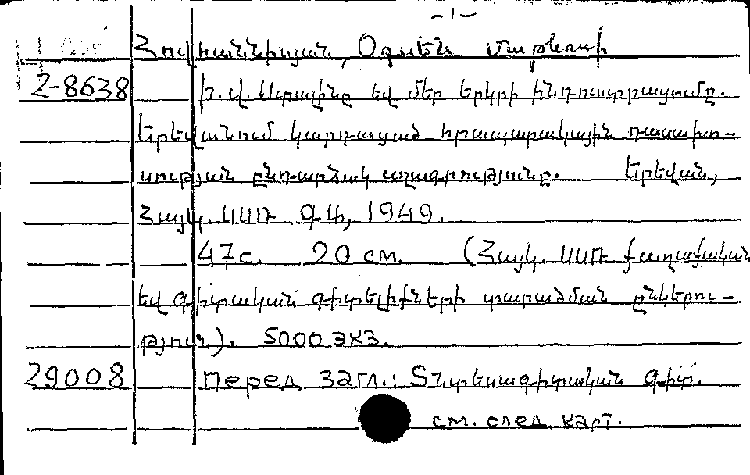 -1-
Հովհաննիսյան, Օգսեն Մաթևոսի
2-8638 Ի. Վ. Ստալինը եվ մեր երկրի ինդուստրացումը.
Երեվանում կարդացած հրապարակային դասախո-
սության ընդարձակ սղագրությունը. Երեվան,
Հայկ. ՍՍՌ ԳԱ, 1949.
47с. 20 см. (Հայկ. ՍՍՌ քաղաքական
եվ գիտական գիտելիքների տարածման ընկերու-
թյուն). 5000 экз.
29008 Перед загл.: Տնտեսագիտական գիտ.
см. след. карт.